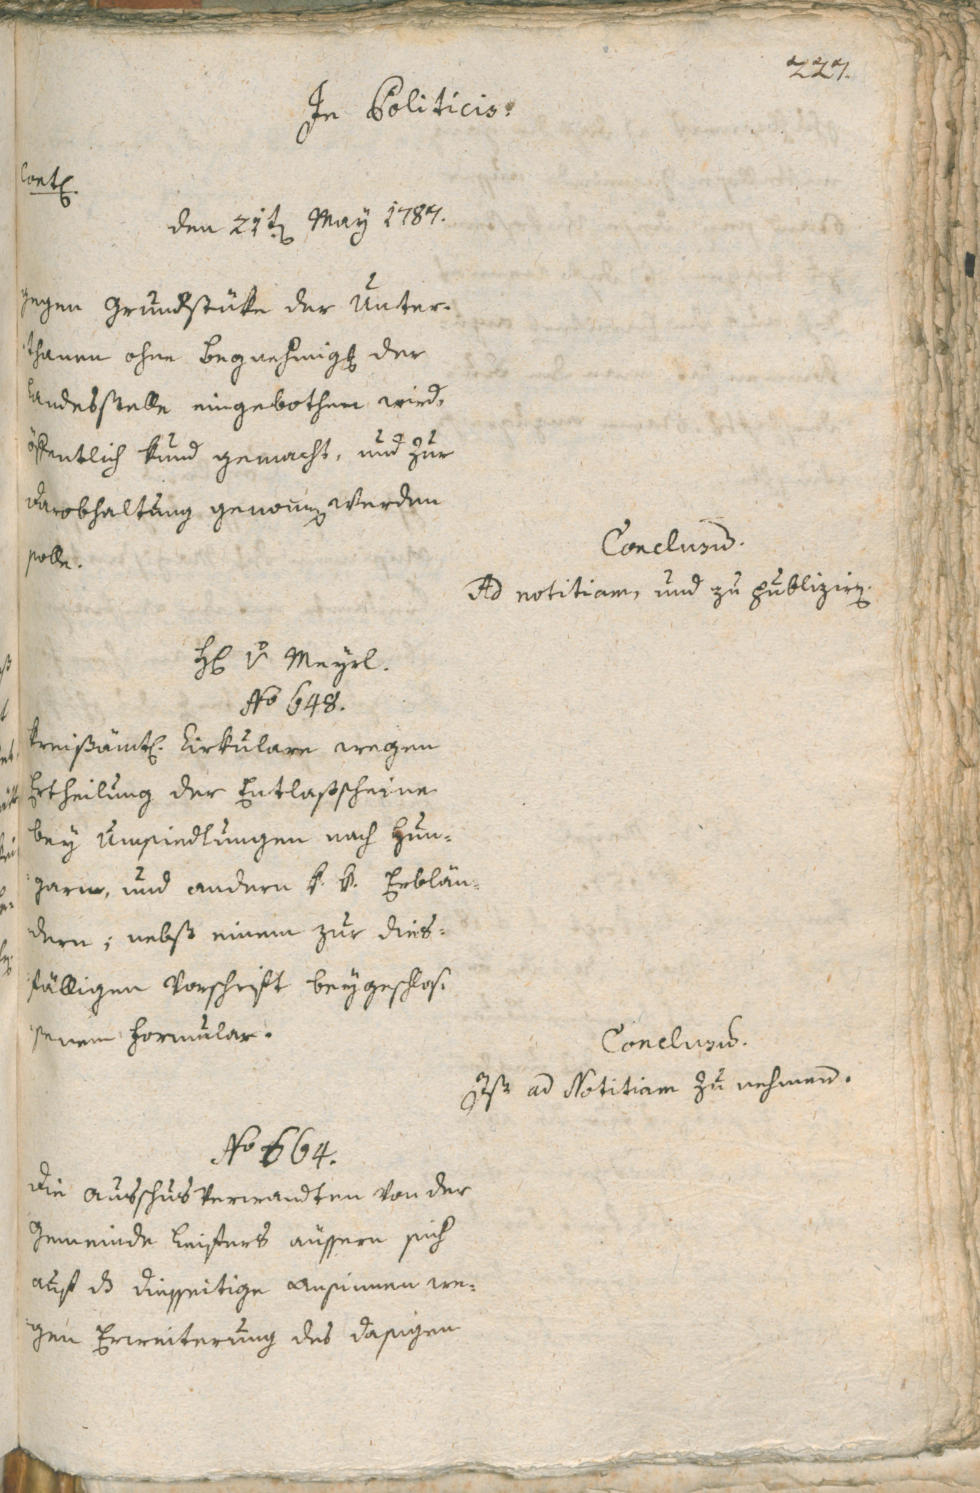 227.
In Politicis.
Cont.
den 21t. May 1787.
gegen Grundstüke der Unter-
thanen ohne begnehmig. der
Landesstelle eingebothen wird,
öffentlich kund gemacht, und zur
Darobhaltung genomen werden
solle.
Conclusum.
Ad notitiam, und zu publizirn.
H. v. Meyrl.
No 648.
Kreißämtl. Cirkulare wegen
Ertheilung der Entlaßscheine
bey Umsiedlungen nach Hun-
garn, und andern k. k. Erblän-
dern, nebst einem zur dies-
fälligen Vorschrift beygeschlos-
senem Formular.
Conclusum.
Ist ad Notitiam zu nehmen.
No 664.
Die Ausschus Verwandten von der
Gemeinde Leifers äussern sich
auf das diesseitige Ansinnen we-
gen Erweiterung des dasigen